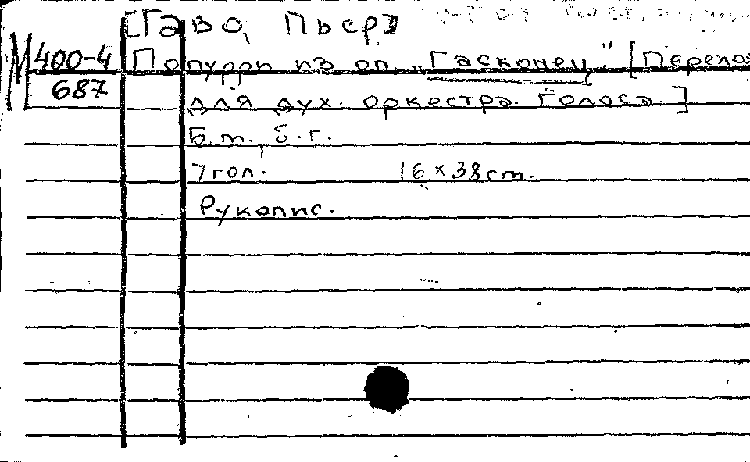 [Гаво, Пьер]
М 400-4 Попурри из оп. „Гасконец" [Перелож
687 для дух. оркестра. Голоса]
Б.м., б.г.
7 гол. 16 × 38 cm.
Рукопис.